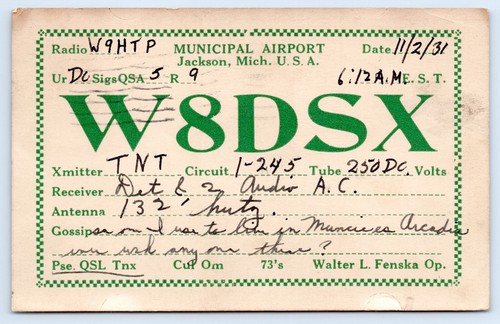 Radio W9HTP MUNICIPAL AIRPORT Date 11/2/31
Jackson, Mich. U. S. A.
Ur DC Sigs QSA 5 R 9 6:12 A.M. E. S. T.
W8DSX
Xmitter TNT Circuit 1-245 Tube 250 DC Volts
Receiver Det & 2 Audio A.C.
Antenna 132' hertz.
Gossip on I use to live in Muncie Arcadia
ever wsh any one there?
Pse. QSL Tnx Cul Om 73's Walter L. Fenska Op.